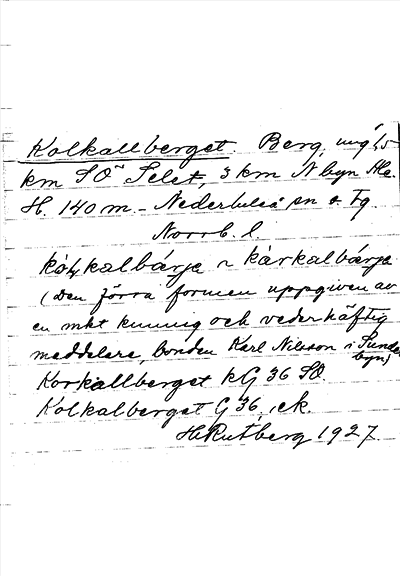 Kolkallberget. Berg, ung 1,5
km SO Selet, 3 km N byn Ale.
H. 140 m. – Nederluleå sn o. Tg.
Norrb. l.
kålkalbärjə ~ kårkalbärjə
(Den förra formen uppgiven av
en mkt kunnig och vederhäftig
meddelare, bonden Karl Nilsson i Sunder
byn)
Korkallberget kG 36 SO.
Kolkalberget G 36, ek.
H Rutberg 1927.